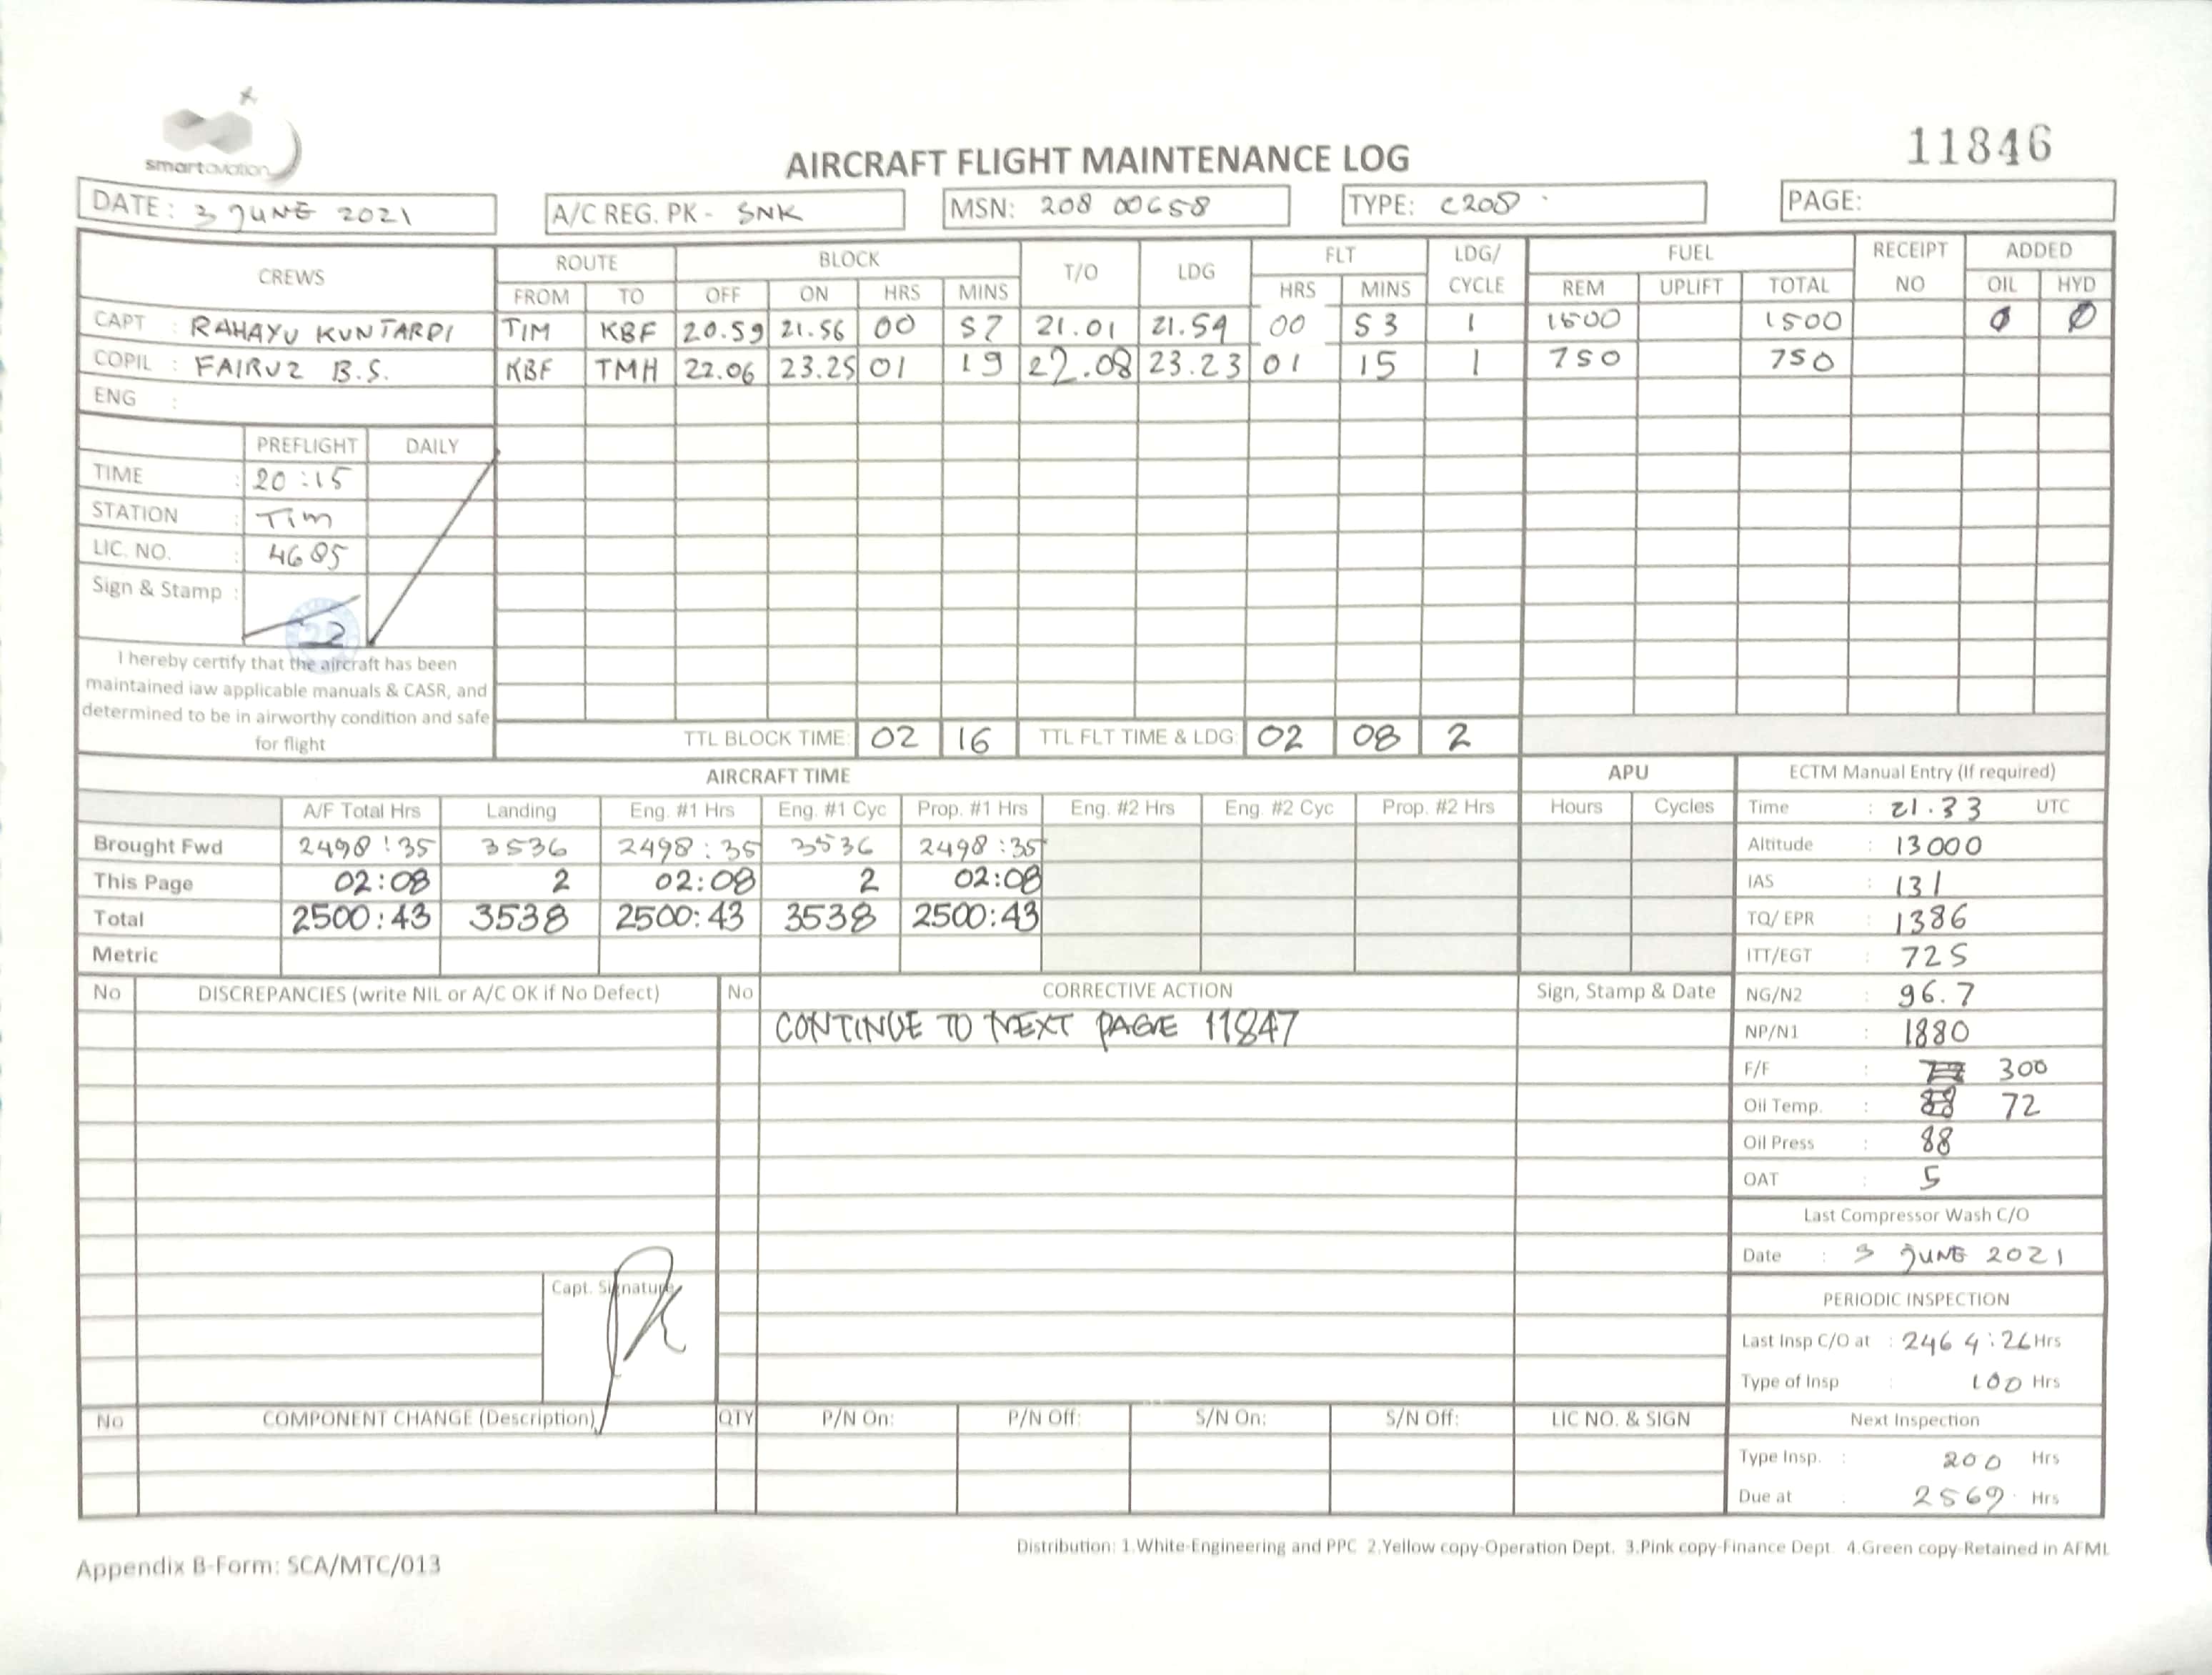 smart aviation
AIRCRAFT FLIGHT MAINTENANCE LOG
11846
DATE: 3 JUNE 2021 A/C REG. PK - SNK MSN: 208 00658 TYPE: C208 PAGE:
CREWS ROUTE BLOCK T/O LDG FLT LDG/ CYCLE FUEL RECEIPT NO ADDED
FROM TO OFF ON HRS MINS HRS MINS REM UPLIFT TOTAL OIL HYD
CAPT : RAHAYU KUNTARDI TIM KBF 20.59 21.56 00 57 21.01 21.54 00 53 1 1500 1500 0 0
COPIL : FAIRUZ B.S. KBF TMH 22.06 23.25 01 19 22.08 23.23 01 15 1 750 750
ENG :
PREFLIGHT DAILY
TIME : 20:15
STATION : TIM
LIC. NO. : 4685
Sign & Stamp :
I hereby certify that the aircraft has been
maintained iaw applicable manuals & CASR, and
determined to be in airworthy condition and safe
for flight
TTL BLOCK TIME: 02 16 TTL FLT TIME & LDG: 02 08 2
AIRCRAFT TIME APU ECTM Manual Entry (If required)
A/F Total Hrs Landing Eng. #1 Hrs Eng. #1 Cyc Prop. #1 Hrs Eng. #2 Hrs Eng. #2 Cyc Prop. #2 Hrs Hours Cycles Time : 21.33 UTC
Brought Fwd 2498:35 3536 2498:35 3536 2498:35 Altitude : 13000
This Page 02:08 2 02:08 2 02:08 IAS : 131
Total 2500:43 3538 2500:43 3538 2500:43 TQ/ EPR : 1386
Metric ITT/EGT : 725
No DISCREPANCIES (write NIL or A/C OK if No Defect) No CORRECTIVE ACTION Sign, Stamp & Date NG/N2 : 96.7
CONTINUE TO NEXT PAGE 11847 NP/N1 : 1880
F/F : 300
Oil Temp. : 72
Oil Press : 88
OAT : 5
Last Compressor Wash C/O
Date : 3 JUNE 2021
Capt. Signature
PERIODIC INSPECTION
Last Insp C/O at : 2464:26 Hrs
Type of Insp : 100 Hrs
No COMPONENT CHANGE (Description) QTY P/N On: P/N Off: S/N On: S/N Off: LIC NO. & SIGN Next Inspection
Type Insp. : 200 Hrs
Due at : 2569 Hrs
Distribution: 1.White-Engineering and PPC 2.Yellow copy-Operation Dept. 3.Pink copy-Finance Dept 4.Green copy-Retained in AFML
Appendix B-Form: SCA/MTC/013